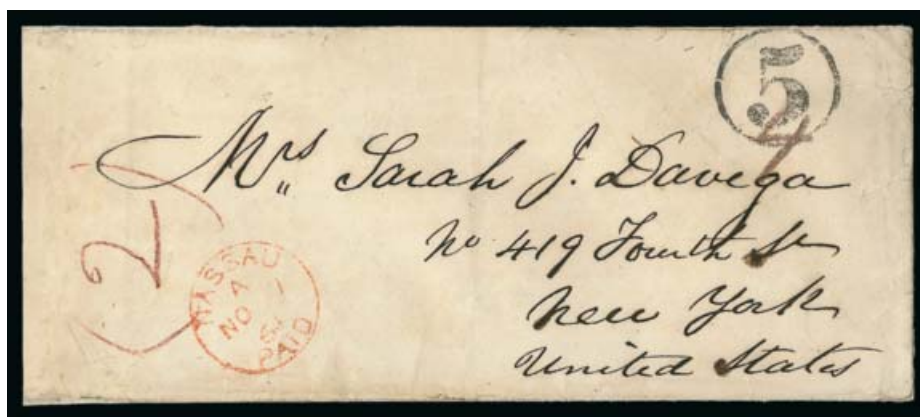 5
4
Mrs Sarah J. Davega
No 419 Fourth St
New York
United States
2
NASSAU
A
NO 1
PAID